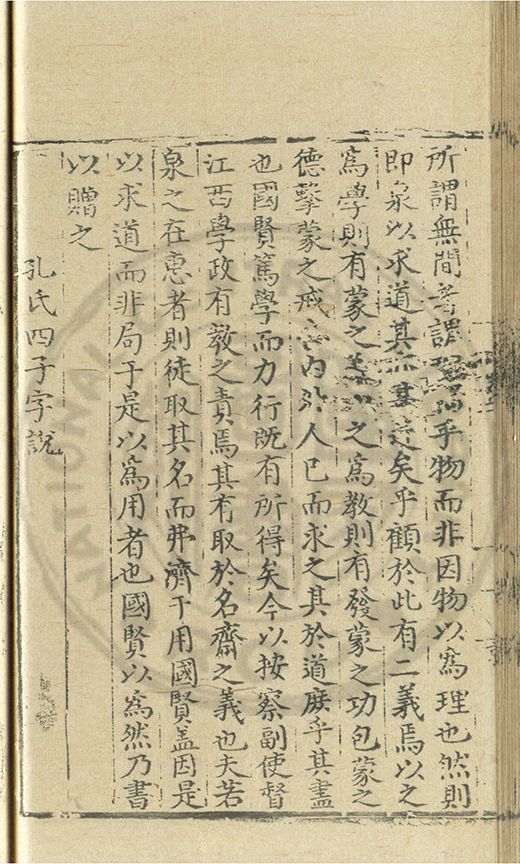 所謂無間者謂理乎物而非因物以爲理也然則
即泉以求道其甚遠矣乎顧於此有二義焉以之
爲學則有蒙之以之爲教則有發蒙之功包蒙之
德擊蒙之戒合內外人已而求之其於道庶乎其盡
也國賢篤學而力行既有所得矣今以按察副使督
江西學政有教之責焉其有取於名齋之義也夫若
泉之在惠者則徒取其名而弗濟于用國賢盖因是
以求道而非局于是以爲用者也國賢以爲然乃書
以贈之
孔氏四子字說